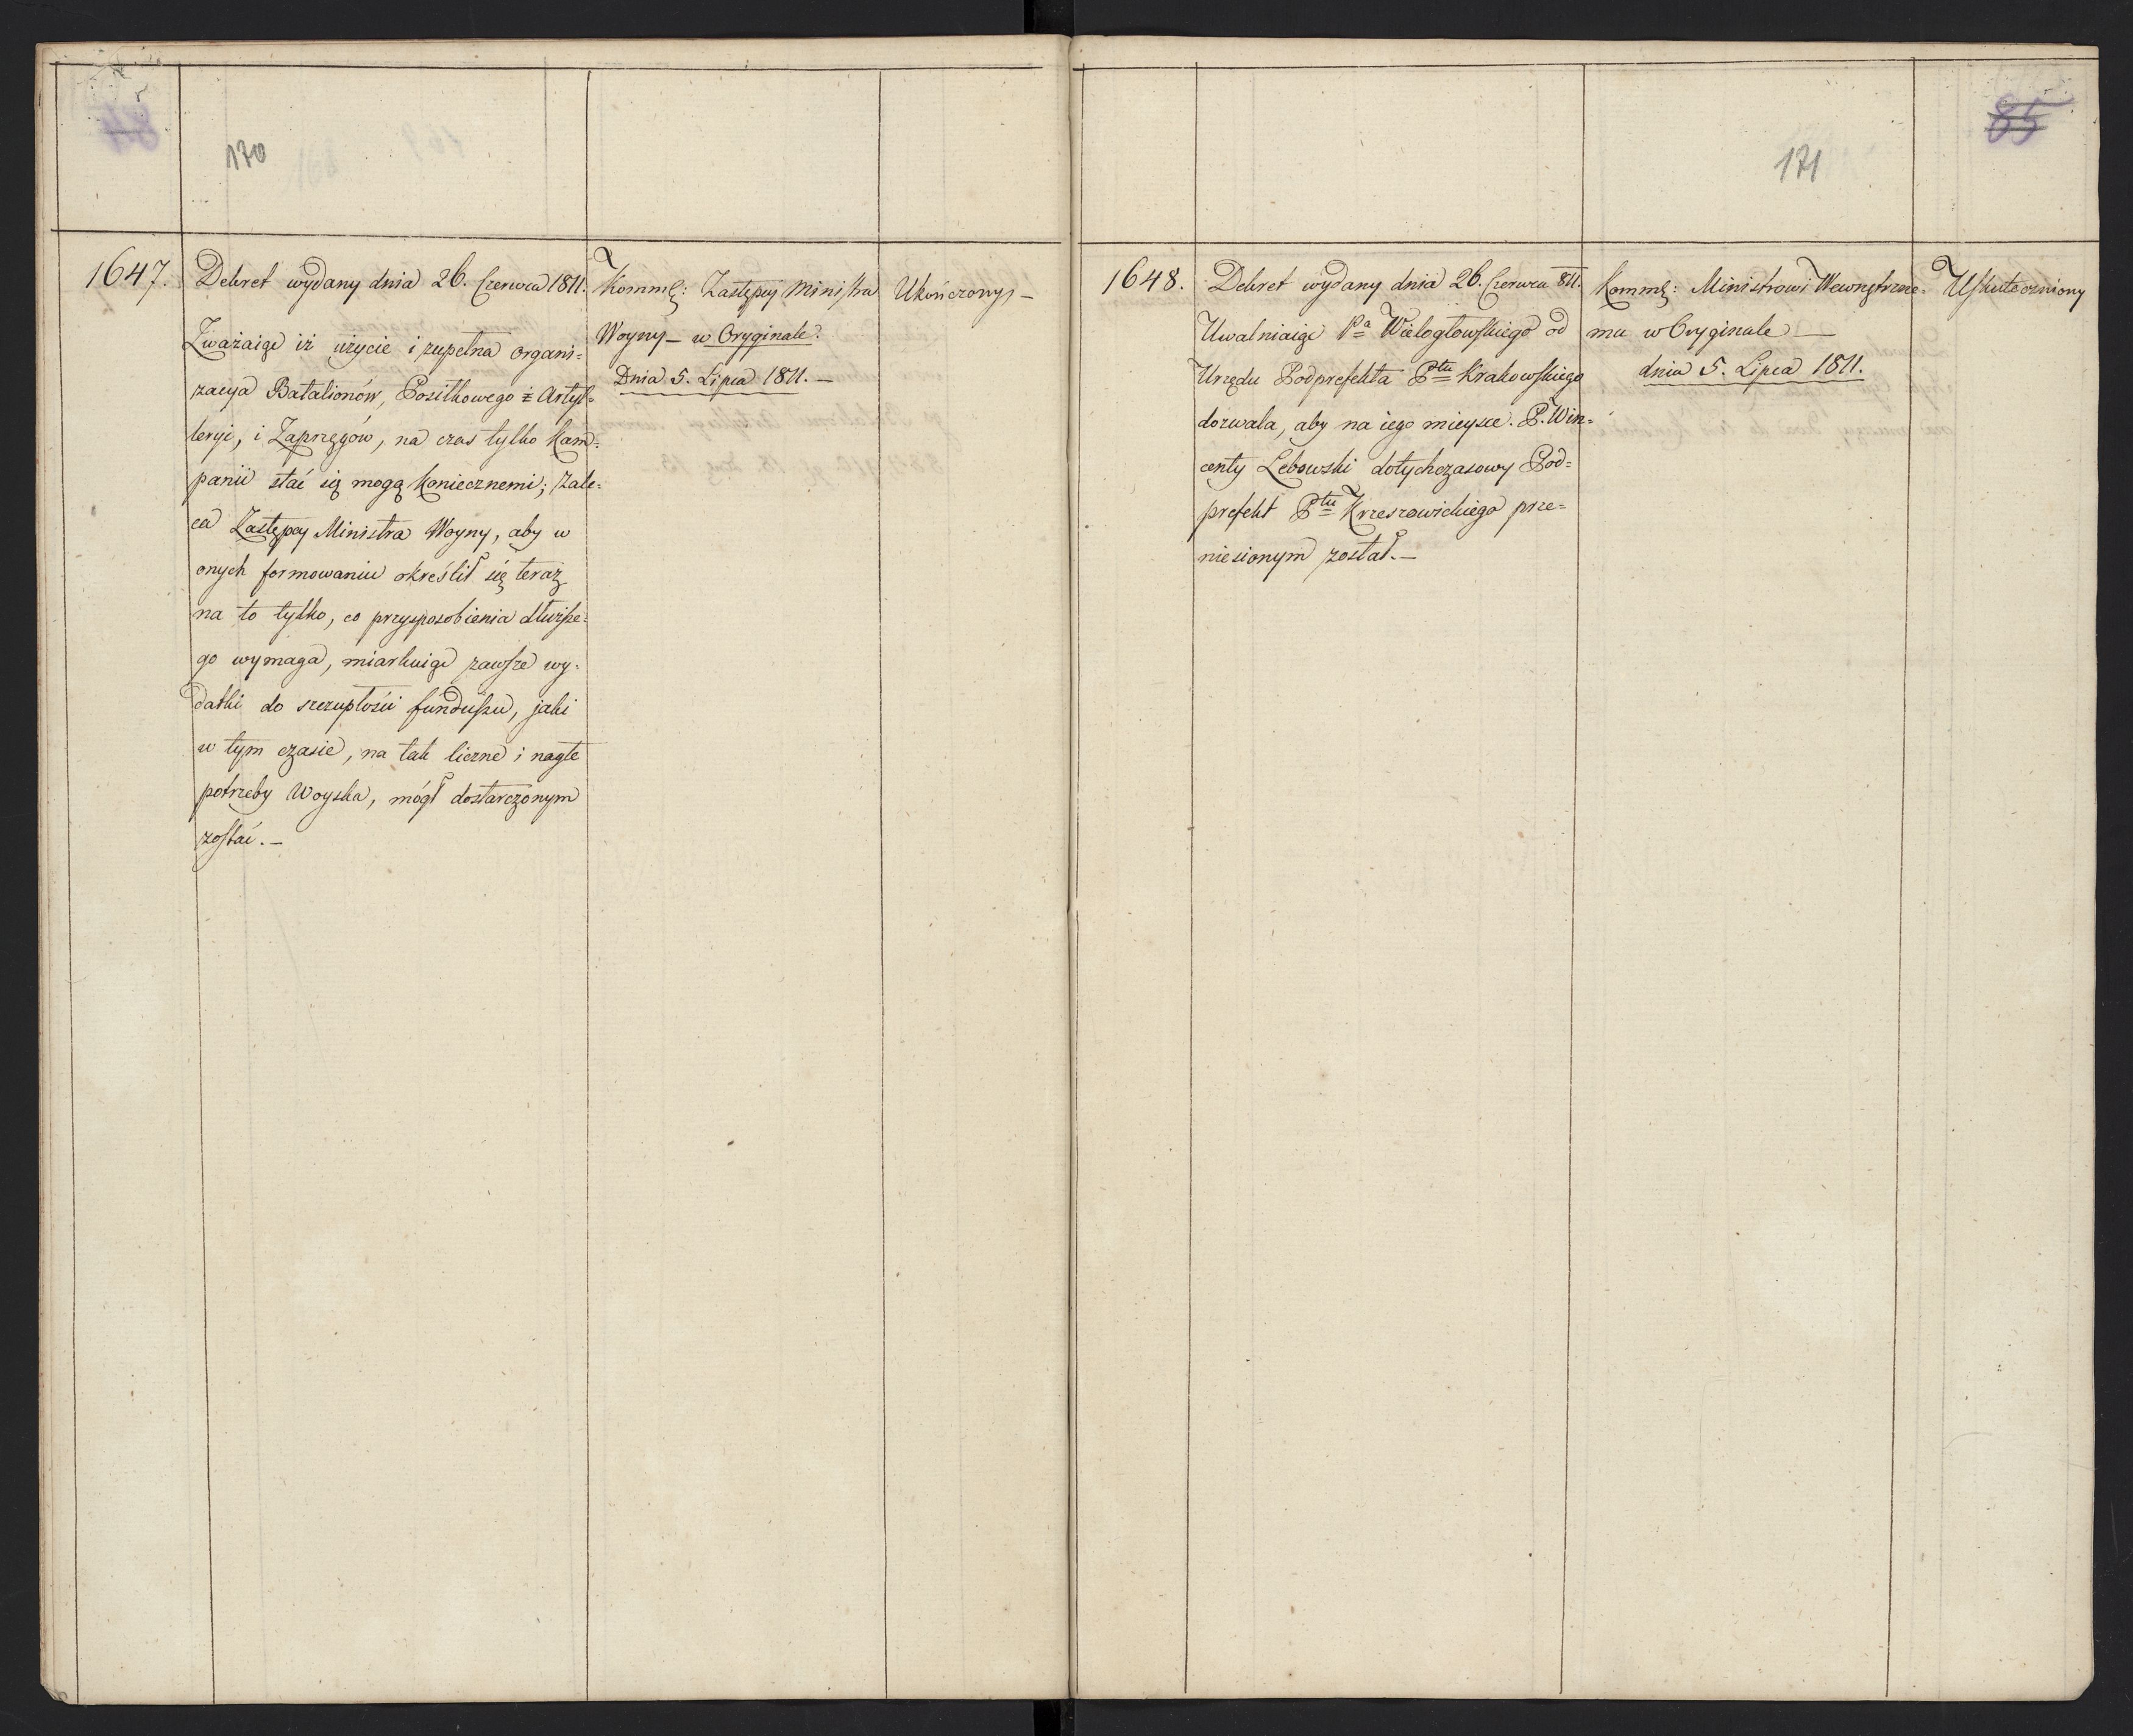 170
1647.
Dekret wydany dnia 26. Czerwca 1811.
Zważaiąc iż użycie i zupełna organi=
zacya Batalionów, Posiłkowego z Artyl=
leryi, i Zaprzęgów, na czas tylko kam=
panii stać się mogą koniecznemi; zale=
ca Zastępcy Ministra Woyny, aby w
onych formowaniu określił się teraz
na to tylko, co przysposobienia dłuższe=
go wymaga, miarkuiąc zawsze wy=
datki do szczupłości funduszu, jaki
w tym czasie, na tak liczne i nagłe
potrzeby Woyska, mógł dostarczonym
zostać.—
Kommę: Zastępcy Ministra
Woyny — w Oryginale.
Dnia 5. Lipca 1811.—
Ukończony —
171
85
1648.
Dekret wydany dnia 26. Czerwca 811.
Uwalniaiąc Pa Wielogłowskiego od
Urzędu Podprefekta Ptu Krakowskiego
dozwala, aby na iego mieysce. P. Win=
centy Łebowski dotychczasowy Pod=
prefekt Ptu Krzeszowickiego prze=
niesionym został.—
Kommę: Ministrowi Wewnętrzne=
mu w Oryginale —
dnia 5. Lipca 1811.
Uskuteczniony